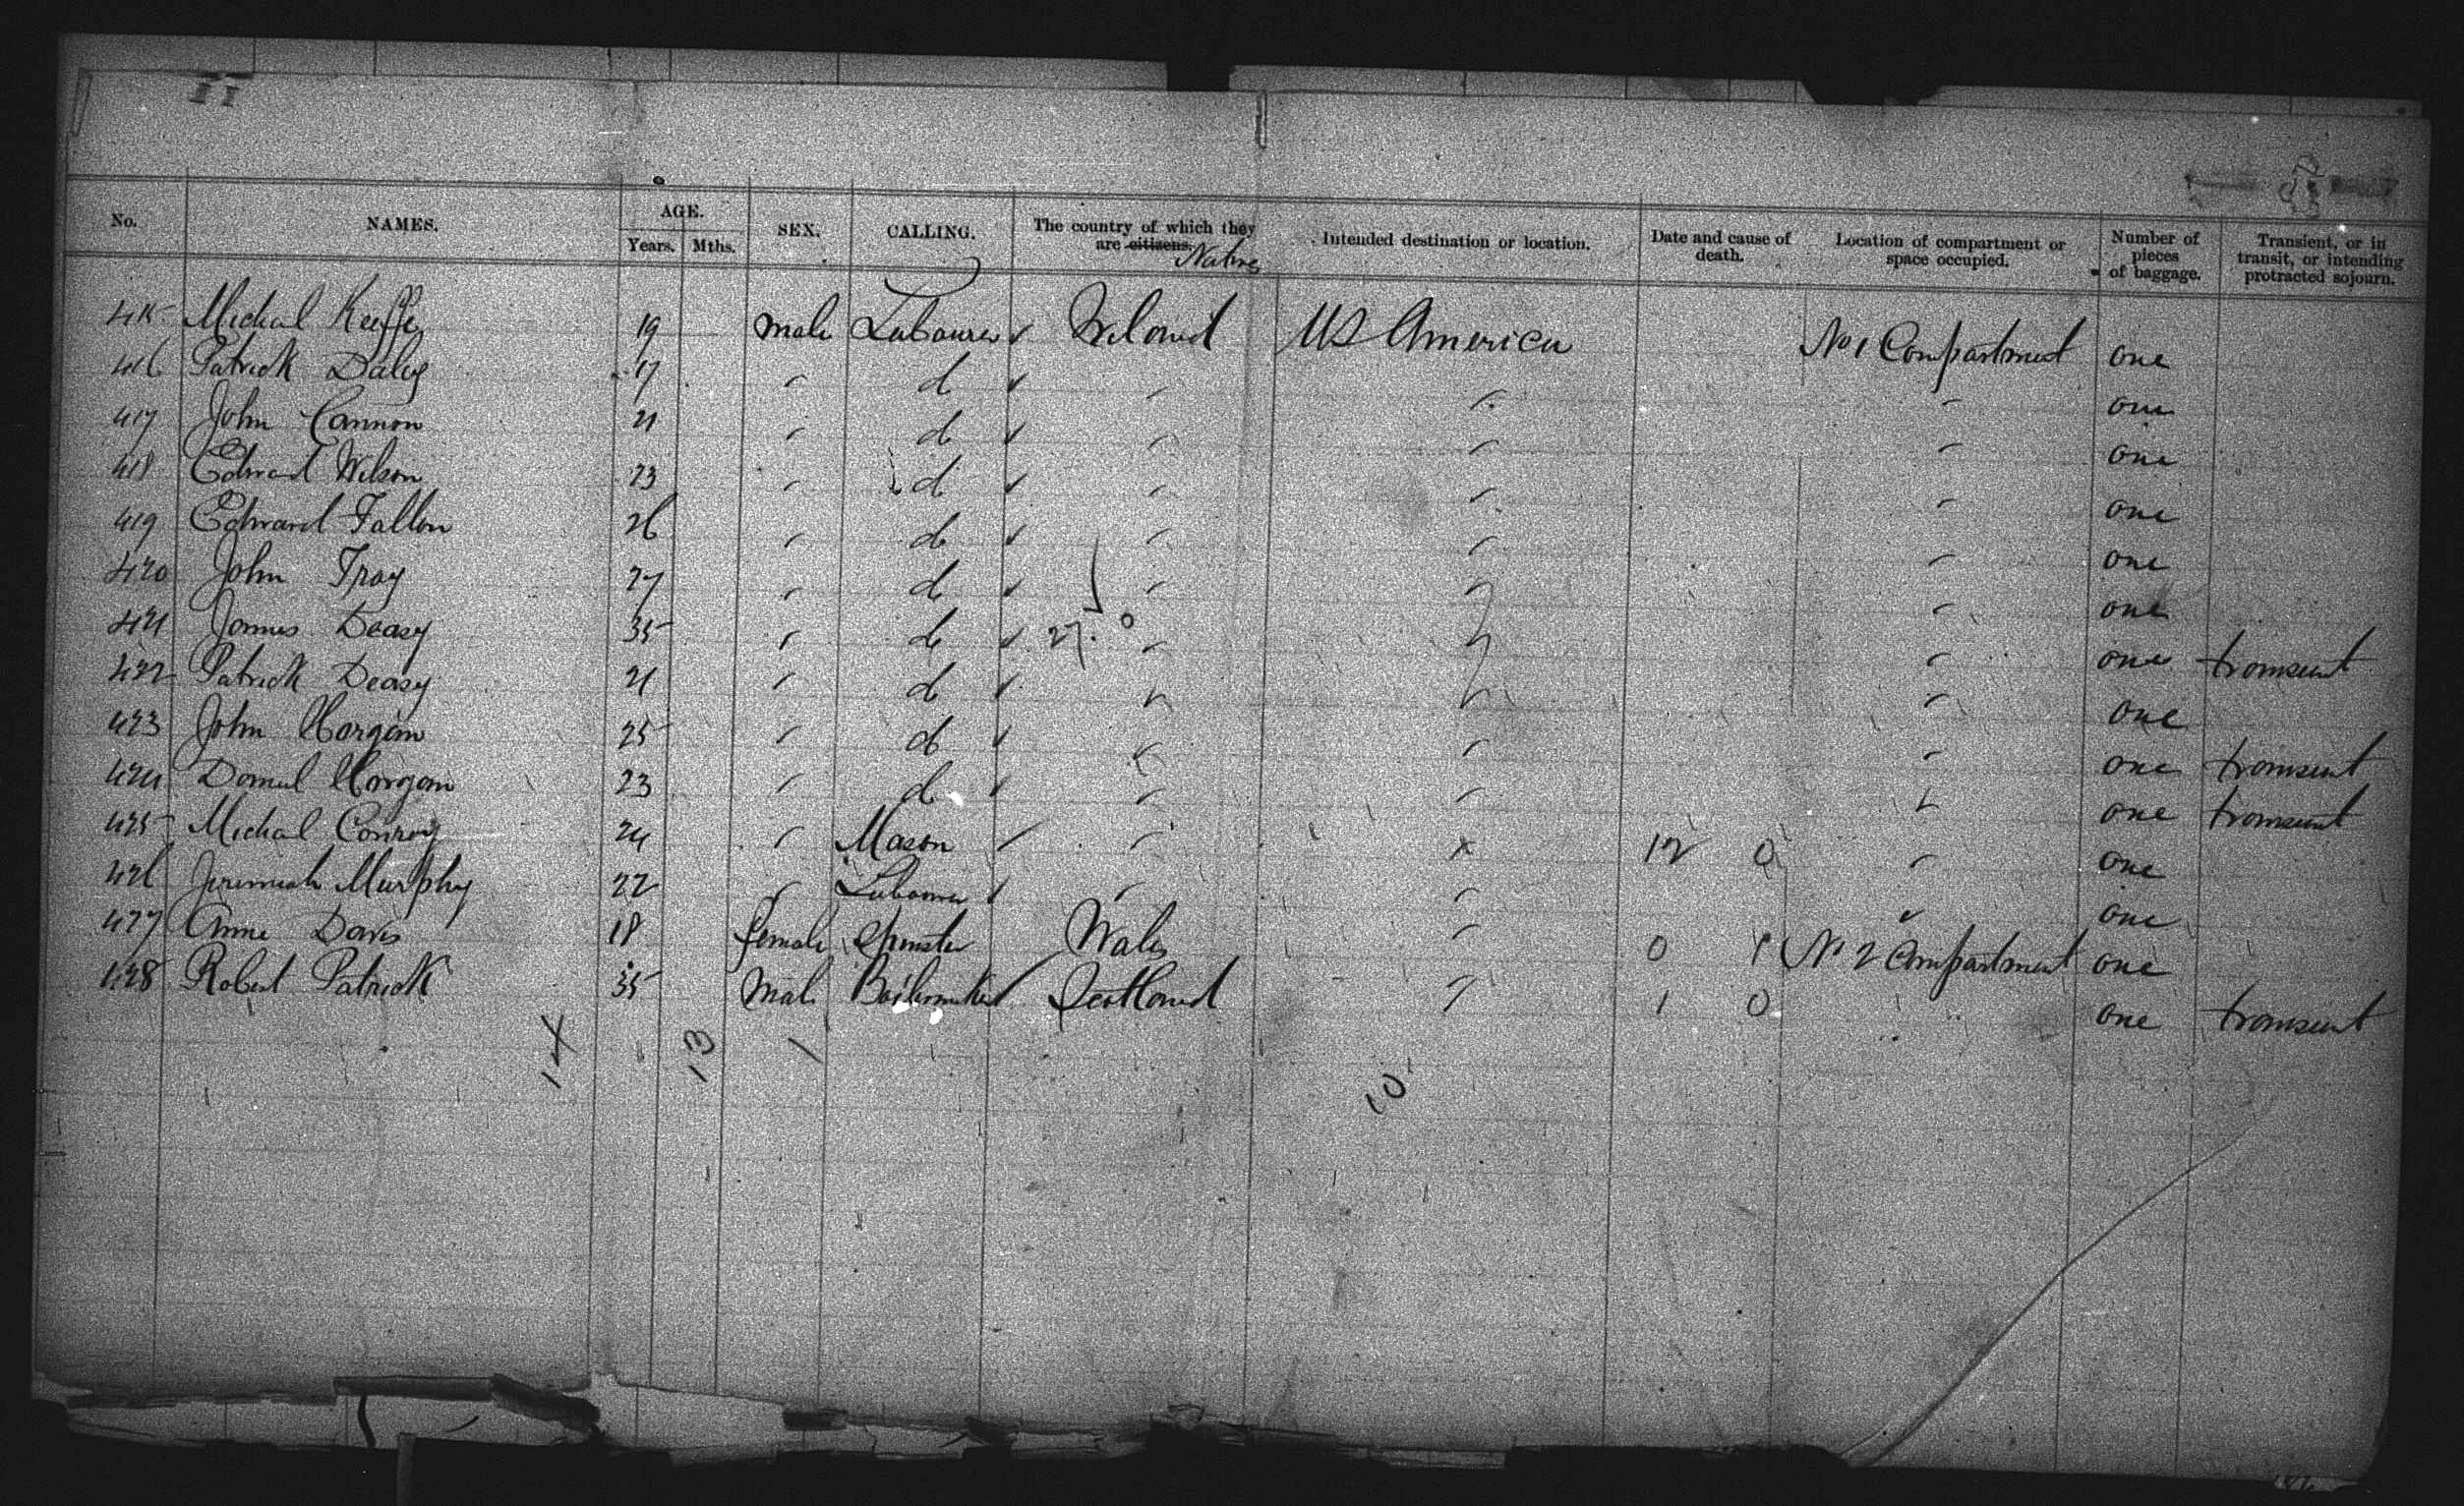 No. NAMES. AGE. Years. Mths. SEX. CALLING. The country of which they are citizens. Natives Intended destination or location. Date and cause of death. Location of compartment or space occupied. Number of pieces of baggage. Transient, or in transit, or intending protracted sojourn.
415 Michal Keeffe 19 Male Labourer ✓ Ireland US America No 1 Compartment one
416 Patrick Daley 17 " do ✓ " " " one
417 John Cannon 21 " do ✓ " " " one
418 Edward Wilson 23 " do ✓ " " " one
419 Edward Fallon 26 " do ✓ " " " one
420 John Tray 27 " do ✓ " " " one
421 James Deasy 35 " do ✓ 27. 0 " " " one transient
422 Patrick Deasy 21 " do ✓ " " " one
423 John Horgan 25 " do ✓ " " " one transient
424 Daniel Horgan 23 " do ✓ " " " one transient
425 Michal Conroy 24 " Mason ✓ " x 12 0 " one
426 Jeremiah Murphy 22 " Labourer ✓ " " " one
427 Anne Davis 18 female Spinster Wales " 0 1 No 2 Compartment one
428 Robert Patrick 35 Male Boilermaker ✓ Scotland " 1 0 " one transient
14 13 1 10